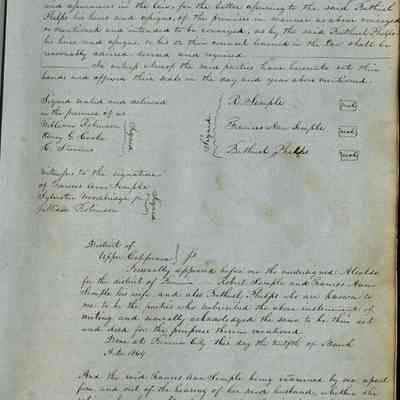 and assurances in the law, for the better assuring to the said Bethuel
Phelps his heirs and assigns, of the premises in manner as above conveyed
or mentioned and intended to be conveyed, as by the said Bethuel Phelps
his heirs and assigns or his or their counsel learned in the Law shall be
reasonably advised devised and required
In witness whereof the said parties have hereunto sets their
hands and affixed their seals in the day and year above mentioned.
Signed sealed and delivered
in the presence of us
William Robinson
Henry E.
C. Stevens
Signed
Signed
R. Semple
Seal
Frances Ann Semple
Seal
Bethuel Phelps
Seal
Witness to the signature
of Frances Ann Semple
Sylvester Woodbridge jr
Robinson
Signed
District of
Upper California
Personally appeared before me the undersigned Alcalde
for the district of Robert Semple and Frances Ann
Semple his wife, and also Bethuel Phelps who are known to
me to be the parties who subscribed the above instrument of
writing and severally acknowledged the same to be their act
and deed for the purposes therein mentioned.
Done at City this day the twelfth of March
A.D. 1849
And the said Frances Ann Semple being examined by me apart
from and out of the hearing of her said husband, whether she